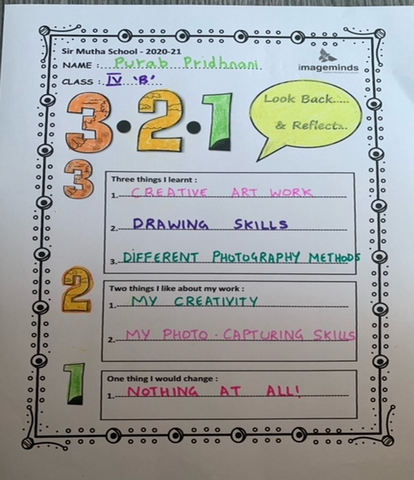 Sir Mutha School - 2020-21
NAME : Purab Pridhnani
imageminds
CLASS : IV 'B'
3.2.1
Look Back.....
& Reflect...
3
Three things I learnt :
1. CREATIVE ART WORK
2. DRAWING SKILLS
3. DIFFERENT PHOTOGRAPHY METHODS
2
Two things I like about my work :
1. MY CREATIVITY
2. MY PHOTO-CAPTURING SKILLS
1
One thing I would change :
1. NOTHING AT ALL!